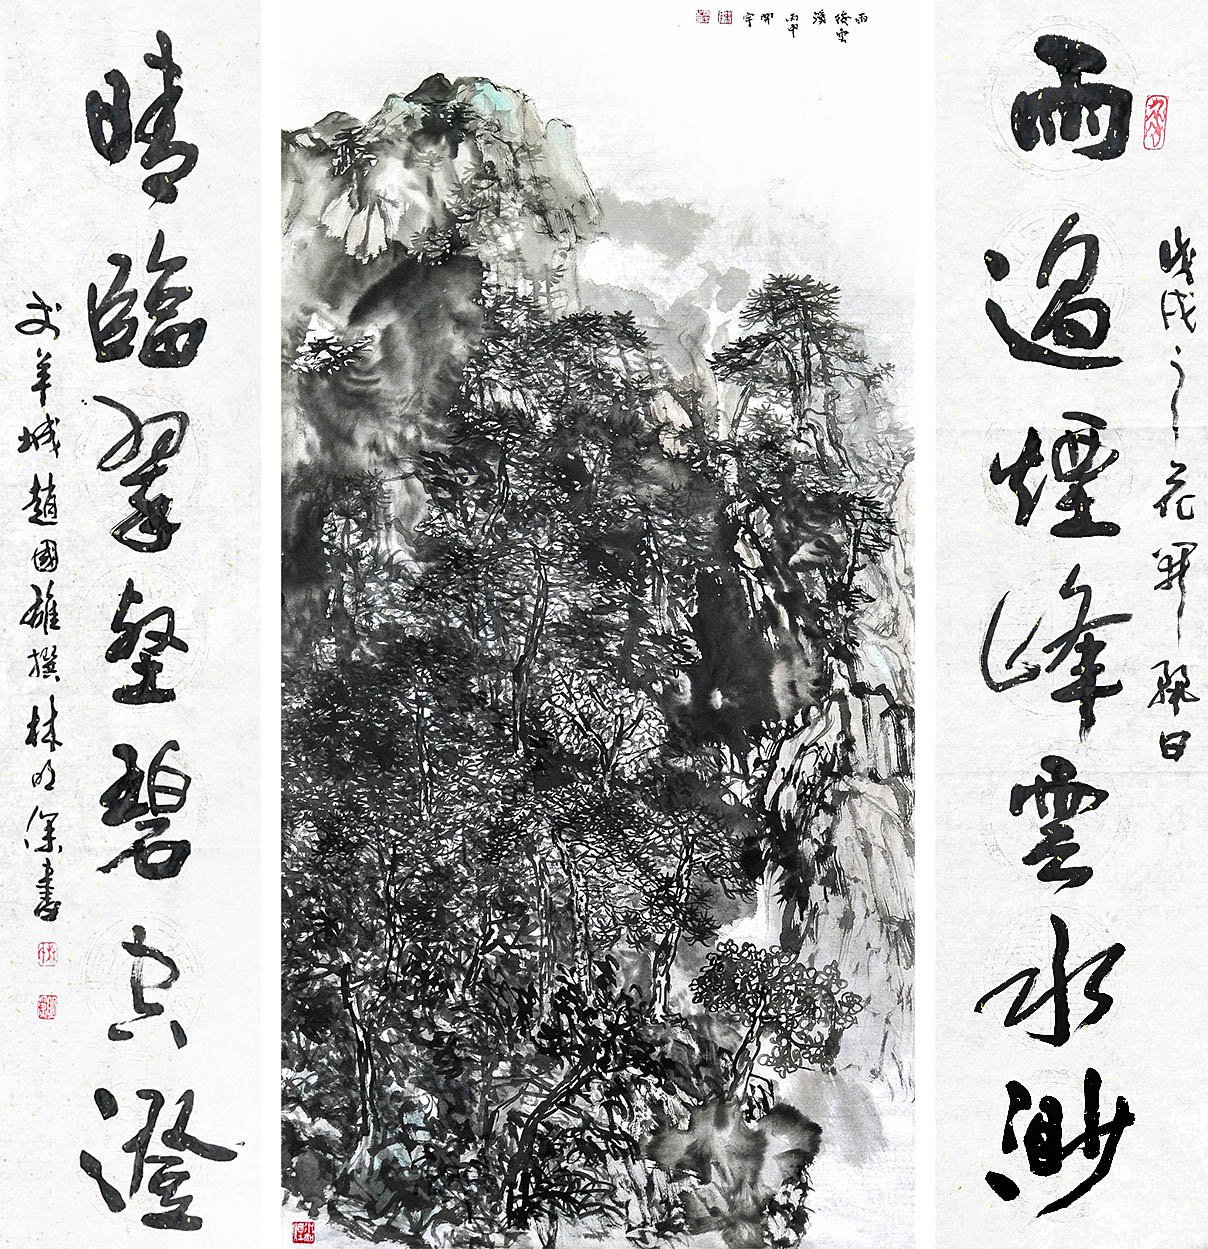 雨過煙峰雲水渺
戊戌之花
日
雨後雲溪
丙申
開宇
晴臨翠壑碧空澄
羊城趙國雄撰林明深書